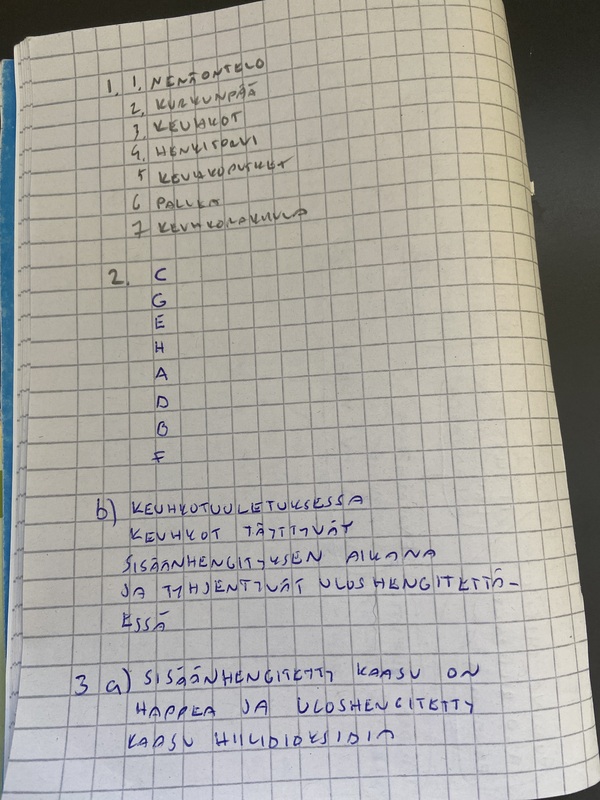 1. 1. NENÄONTELO
2. KURKUNPÄÄ
3. KEUHKOT
4. HENKITORVI
5 KEUHKOPUTKET
6 PALLEA
7 KEUHKORAKKULA
2. C
G
E
H
A
D
B
F
b) KEUHKOTUULETUKSESSA
KEUHKOT TÄYTTYVÄT
SISÄÄNHENGITYKSEN AIKANA
JA TYHJENTYVÄT ULOSHENGITETTÄ-
ESSÄ
3 a) SISÄÄNHENGITETTY KAASU ON
HAPPEA JA ULOSHENGITETTY
KAASU HIILIDIOKSIDIA